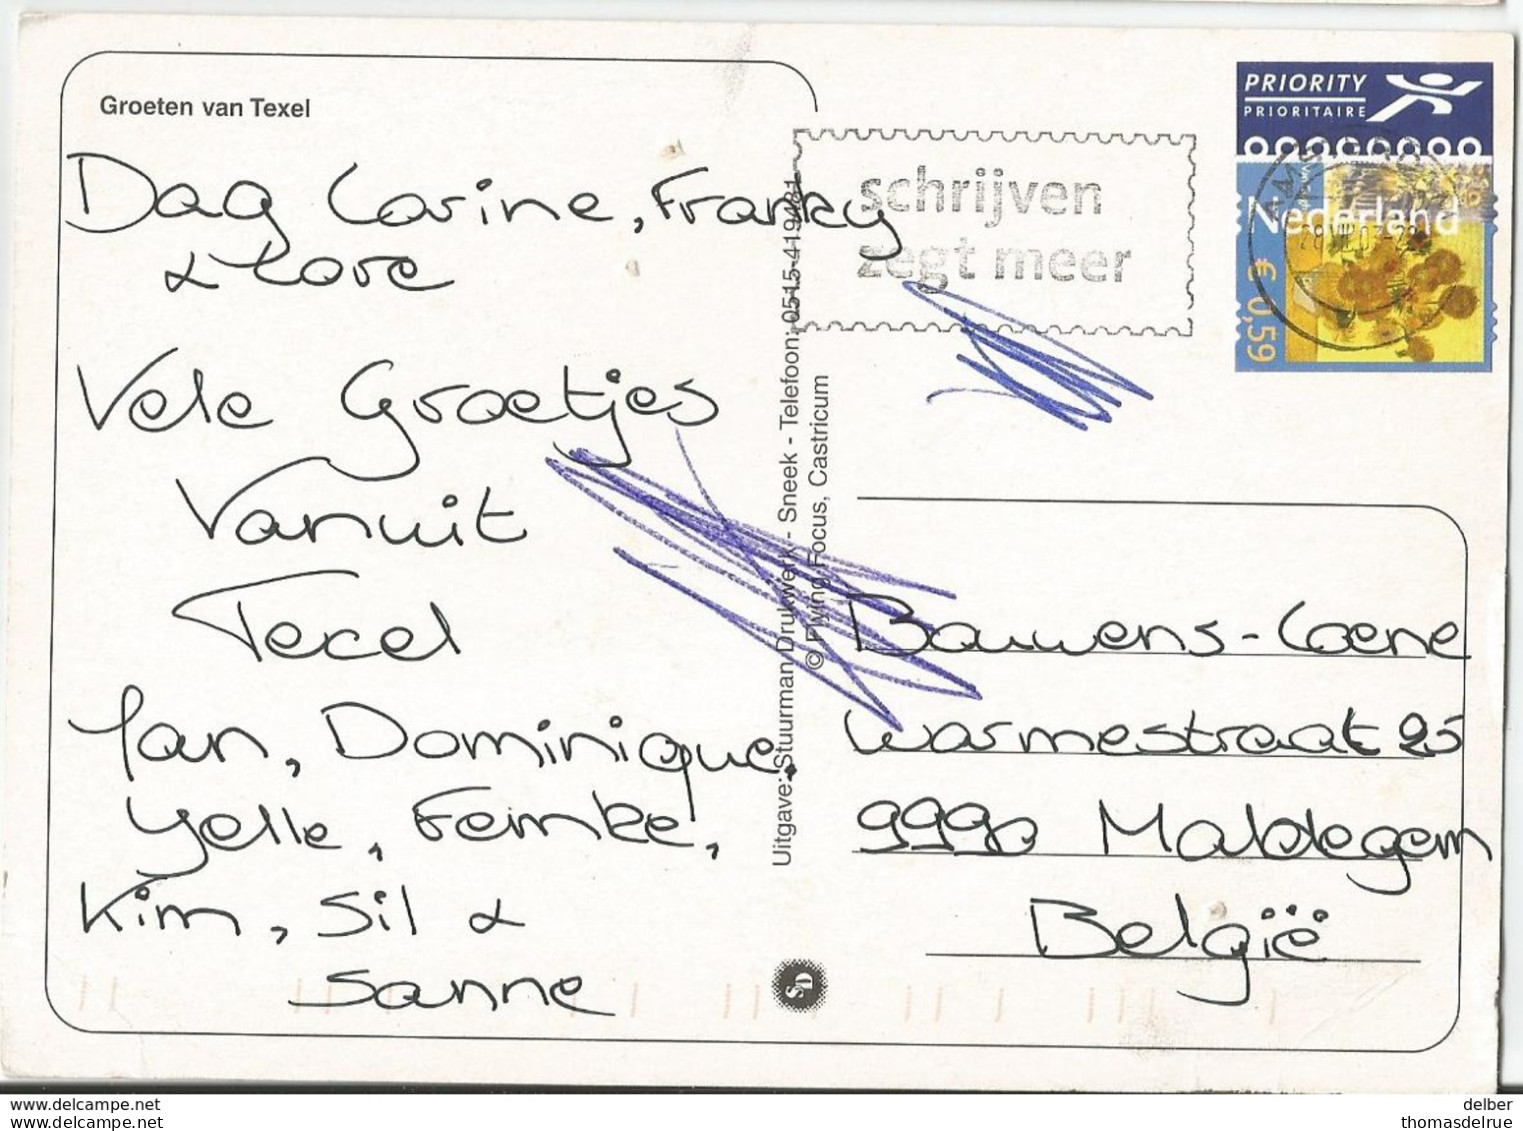 Groeten van Texel
Dag Carine, Franky
& Lore
Vele Groetjes
Vanuit
Texel
Jan, Dominique,
Yelle, Femke,
Kim, Sil &
Sanne
Uitgave: Stuurman Drukwerk - Sneek - Telefoon: 0515-419481
© Flying Focus, Castricum
schrijven
zegt meer
PRIORITY
PRIORITAIRE
Nederland
€ 0,59
Bauwens-Coene
Warmestraat 25
9990 Maldegem
België
SD
delcampe.net
delber
thomasdelrue